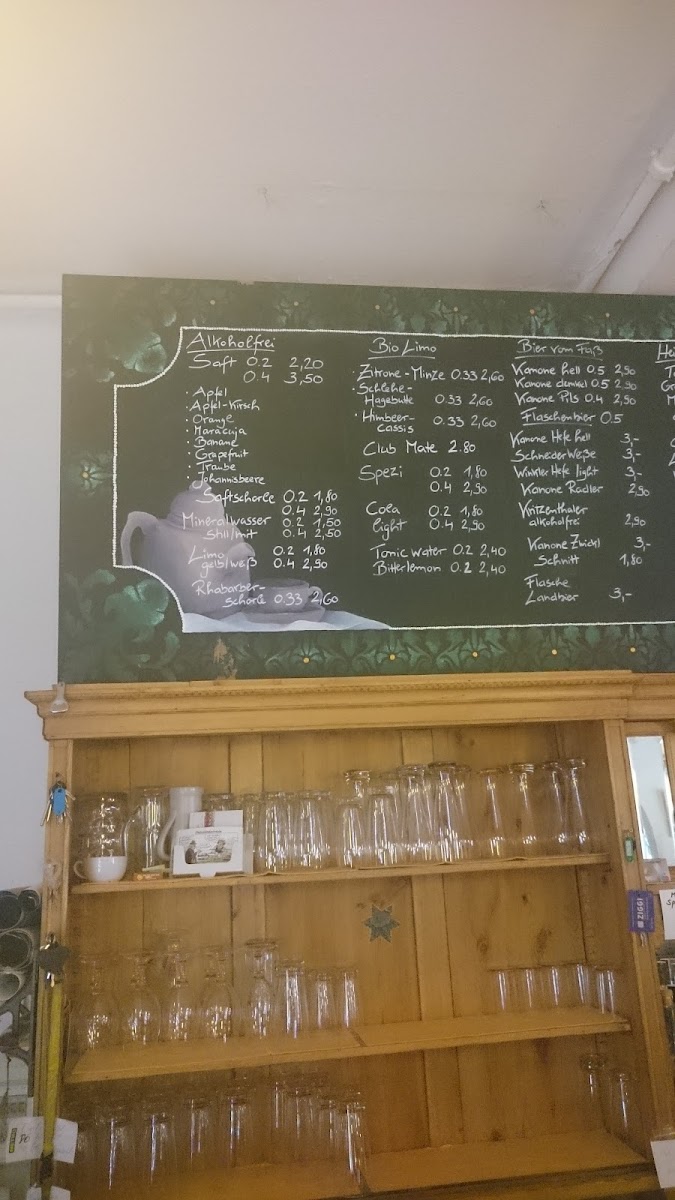 Alkoholfrei
Saft 0.2 2,20
0.4 3,50
· Apfel
· Apfel-Kirsch
· Orange
· Maracuja
· Banane
· Grapefruit
· Traube
· Johannisbeere
Saftschorle 0.2 1,80
0.4 2,90
Mineralwasser 0.2 1,50
still/mit 0.4 2,50
Limo 0.2 1,80
gelb/weß 0.4 2,90
Rhabarber-
schorle 0.33 2,60
Bio Limo
· Zitrone-Minze 0.33 2,60
· Schlehe-
Hagebutte 0.33 2,60
· Himbeer-
cassis 0.33 2,60
Club Mate 2.80
Spezi 0.2 1,80
0.4 2,90
Cola 0.2 1,80
light 0.4 2,90
Tonic water 0.2 2,40
Bitterlemon 0.2 2,40
Bier vom Faß
Kanone hell 0.5 2,90
Kanone dunkel 0.5 2,90
Kanone Pils 0.4 2,90
Flaschenbier 0.5
Kanone Hefe hell 3,-
Schneider Weße 3,-
Winkler Hefe light 3,-
Kanone Radler 2,90
Kritzenthaler
alkoholfrei 2,90
Kanone Zwickl 3,-
Schnitt 1,80
Flasche
Landbier 3,-
ZIGGI